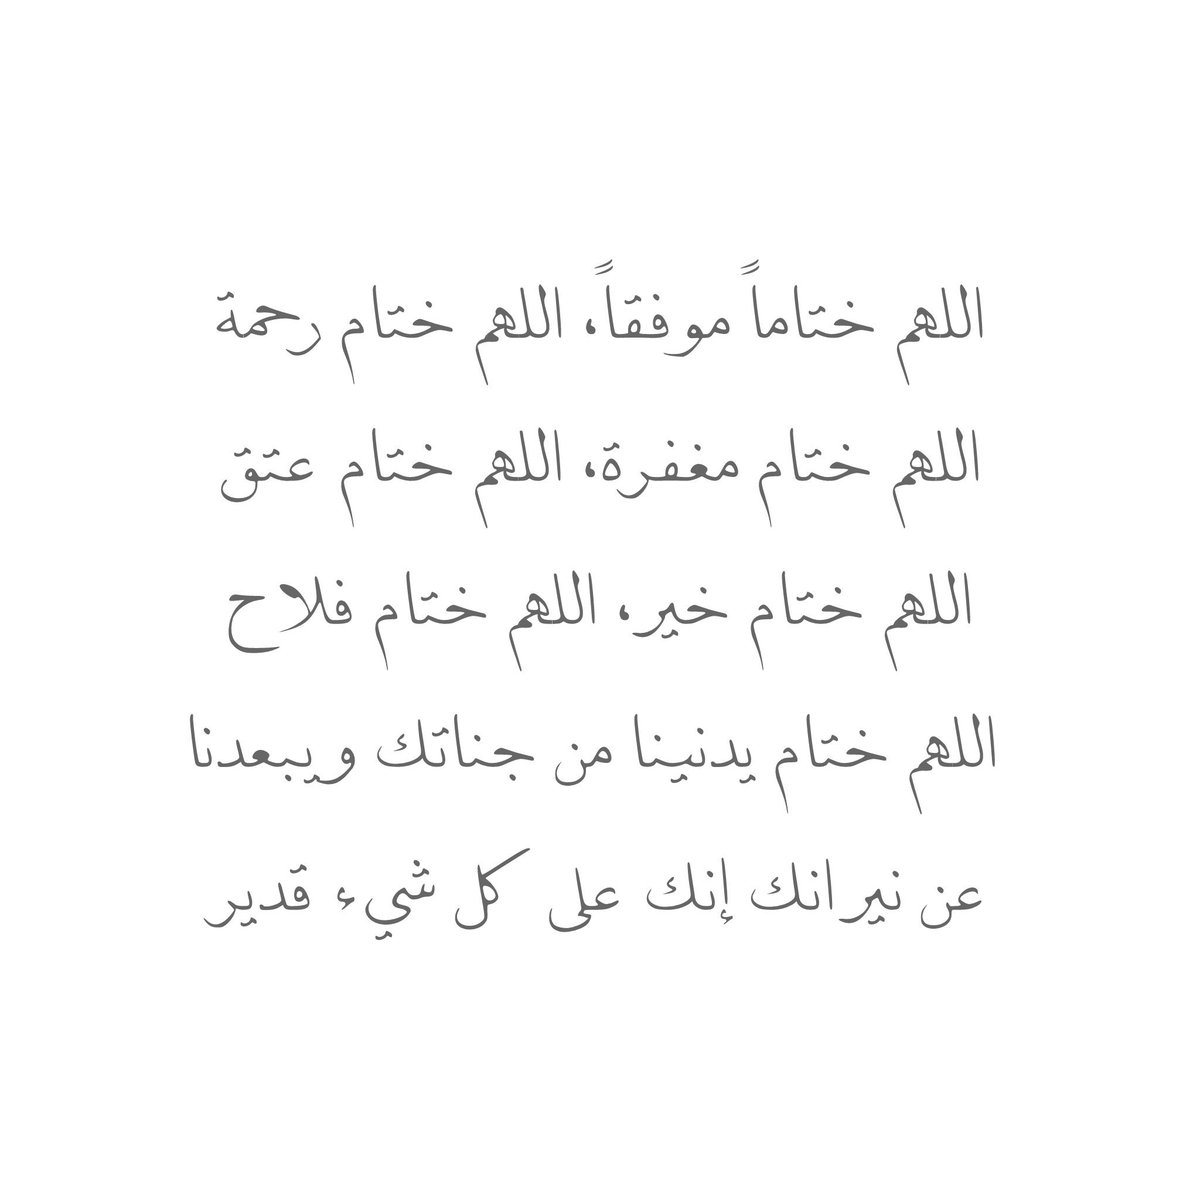 اللهم ختاماً موفقاً، اللهم ختام رحمة
اللهم ختام مغفرة، اللهم ختام عتق
اللهم ختام خير، اللهم ختام فلاح
اللهم ختام يدنينا من جناتك ويبعدنا
عن نيرانك إنك على كل شيء قدير